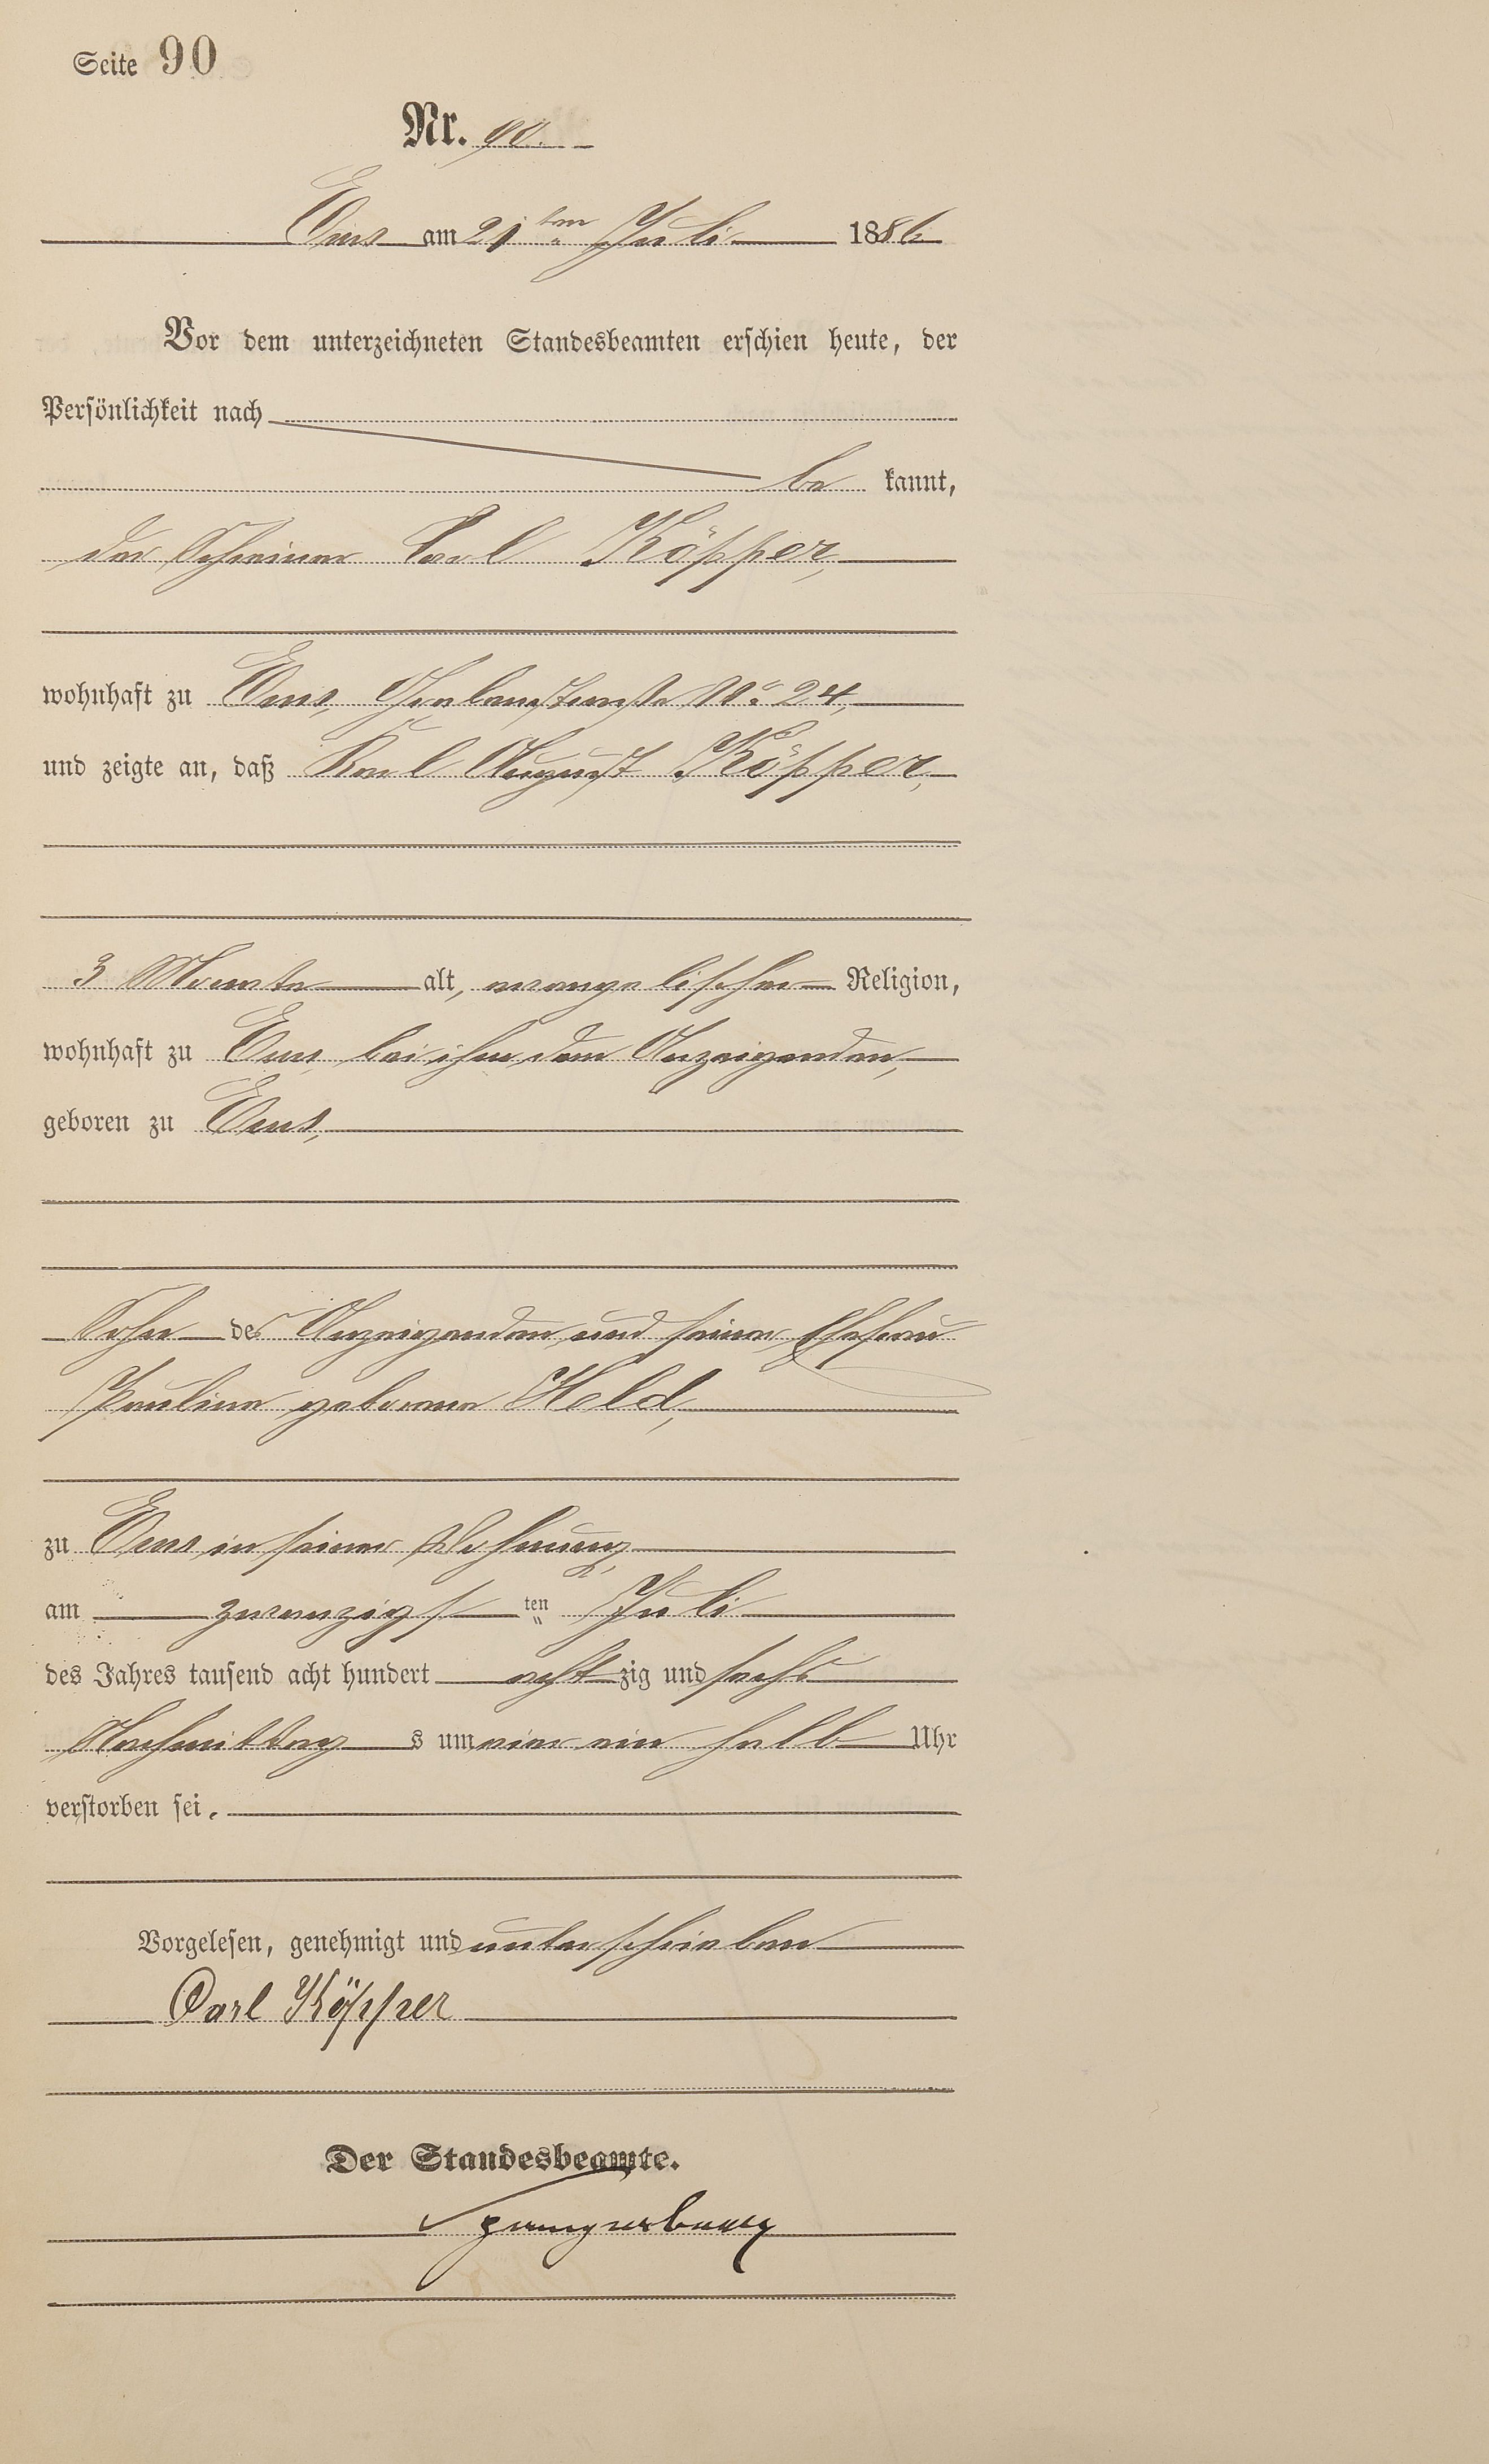 Seite 90
Nr. 90.
Ems am 21ten Juli 1886
Vor dem unterzeichneten Standesbeamten erschien heute, der
Persönlichkeit nach
be kannt,
der Schreiner Carl Köpper,
wohnhaft zu Ems, No 24,
und zeigte an, daß Karl August Köpper,
3 Monate alt, evangelischer Religion,
wohnhaft zu Ems, bei ihm, dem Anzeigenden,
geboren zu Ems,
Sohn des Anzeigenden und seiner Ehefrau
Pauline geborene Held,
zu Ems in seiner Wohnung,
am zwanzigsten Juli
des Jahres tausend acht hundert acht zig und sechs
Nachmittag s um ein halb Uhr
verstorben sei.
Vorgelesen, genehmigt und unterschrieben
Carl Köpper
Der Standesbeamte.
Spangenberg